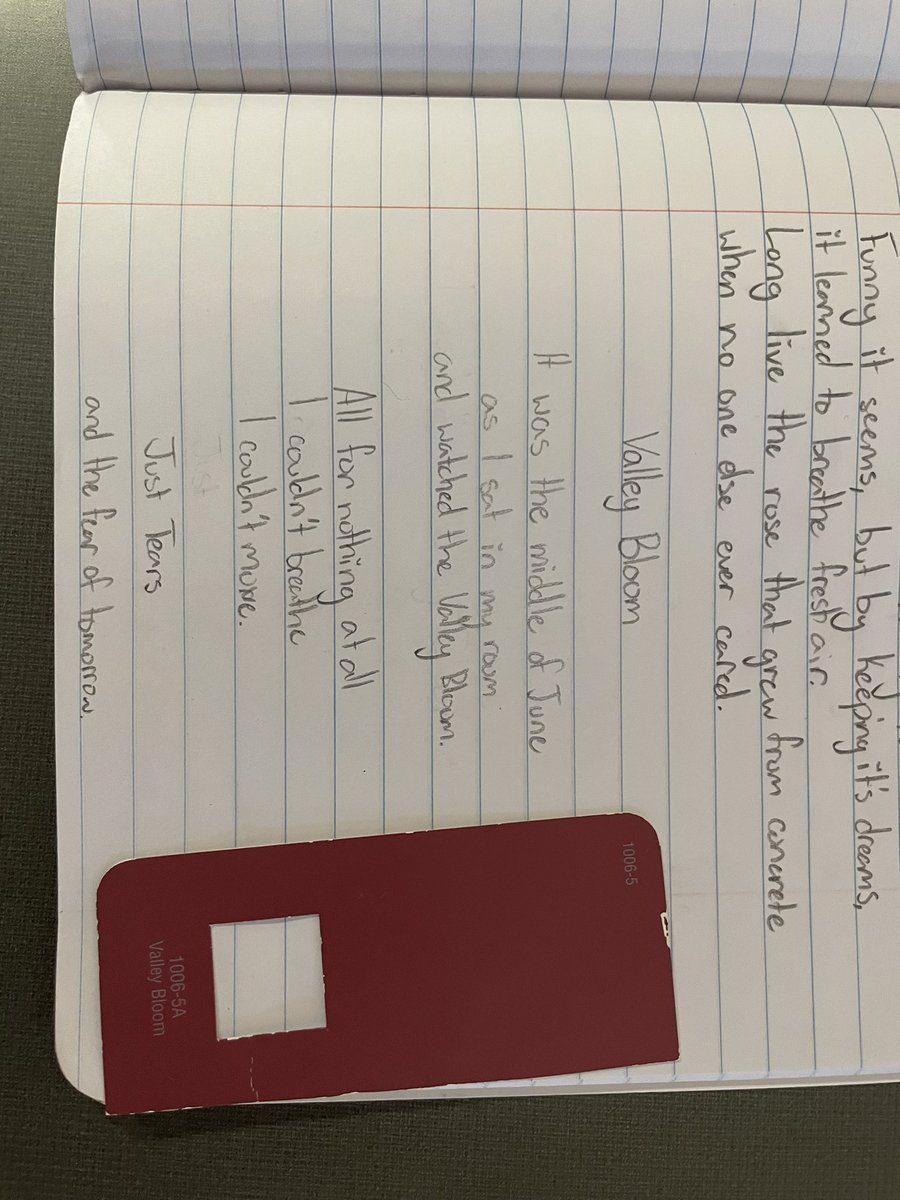 Funny it seems, but by keeping it's dreams,
it learned to breathe fresh air.
Long live the rose that grew from concrete
when no one else ever cared.
Valley Bloom
It was the middle of June
as I sat in my room
and watched the Valley Bloom.
All for nothing at all
I couldn't breathe
I couldn't move.
Just
Just Tears
and the fear of tomorrow.
1006-5
1006-5A
Valley Bloom